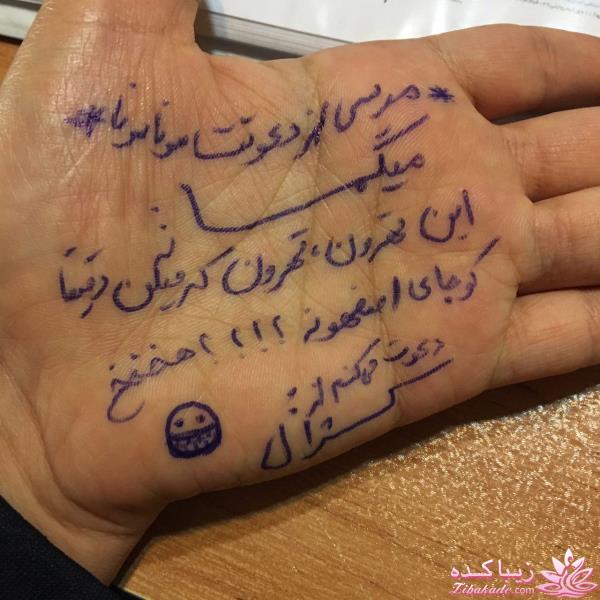 * مرسی از دعوتت مونا مونا *
میگمااا
این تهرون، تهرون که میگن دقیقا
کوجای اصفهونه ؟!؟!؟ خخخخ
دعوت میکنم از
زیباکده
Zibakade.com